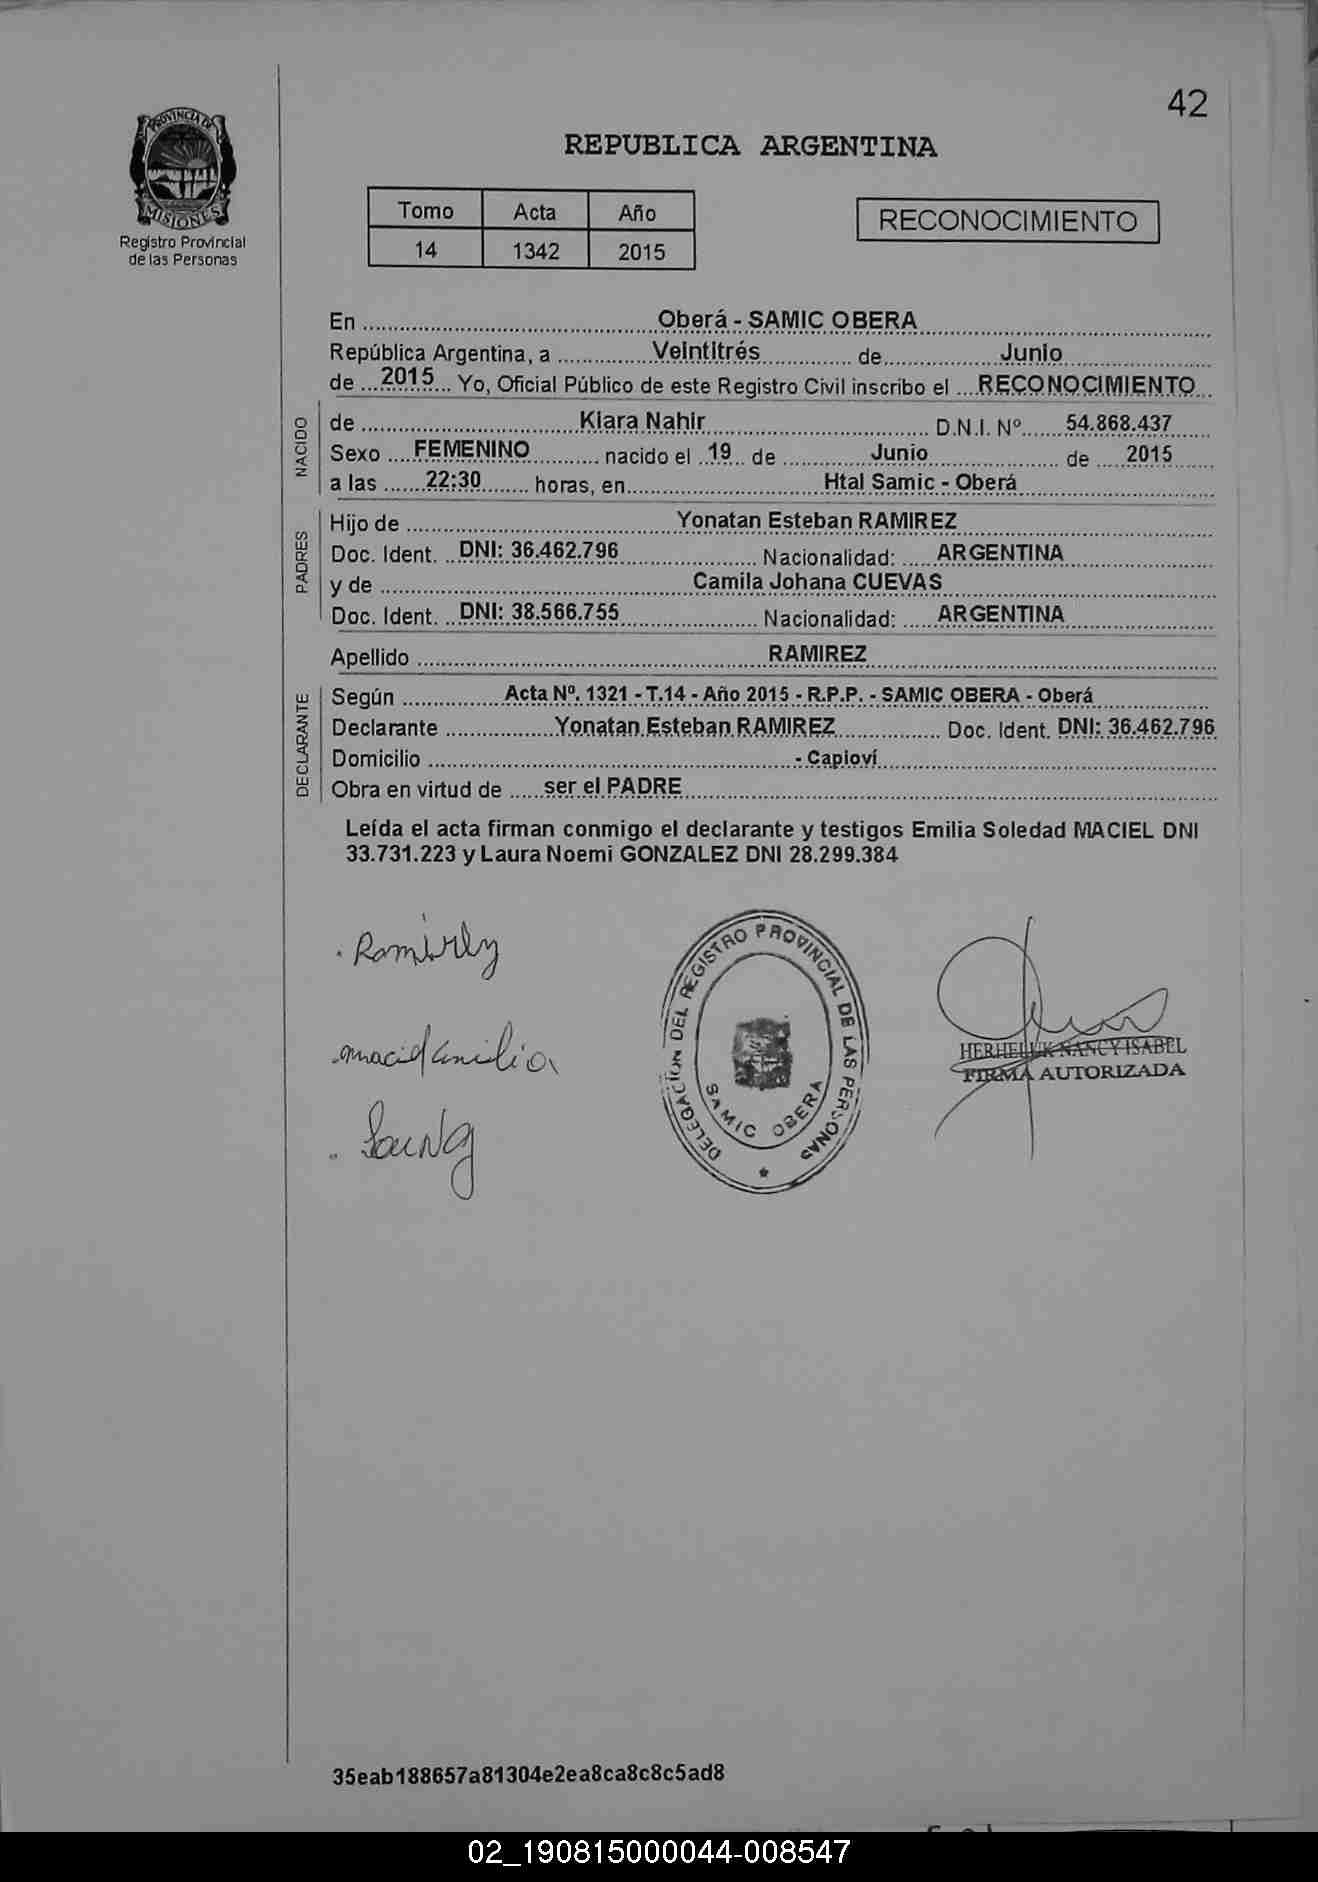 42
PROVINCIA DE
MISIONES
Registro Provincial
de las Personas
REPUBLICA ARGENTINA
Tomo Acta Año
14 1342 2015
RECONOCIMIENTO
En Oberá - SAMIC OBERA
República Argentina, a Veintitrés de Junio
de 2015 Yo, Oficial Público de este Registro Civil inscribo el RECONOCIMIENTO
NACIDO
de Kiara Nahir D.N.I. Nº 54.868.437
Sexo FEMENINO nacido el 19 de Junio de 2015
a las 22:30 horas, en Htal Samic - Oberá
PADRES
Hijo de Yonatan Esteban RAMIREZ
Doc. Ident. DNI: 36.462.796 Nacionalidad: ARGENTINA
y de Camila Johana CUEVAS
Doc. Ident. DNI: 38.566.755 Nacionalidad: ARGENTINA
Apellido RAMIREZ
DECLARANTE
Según Acta Nº. 1321 - T.14 - Año 2015 - R.P.P. - SAMIC OBERA - Oberá
Declarante Yonatan Esteban RAMIREZ Doc. Ident. DNI: 36.462.796
Domicilio - Capioví
Obra en virtud de ser el PADRE
Leída el acta firman conmigo el declarante y testigos Emilia Soledad MACIEL DNI
33.731.223 y Laura Noemi GONZALEZ DNI 28.299.384
DELEGACION DEL REGISTRO PROVINCIAL DE LAS PERSONAS
SAMIC OBERA
NANCY ISABEL
FIRMA AUTORIZADA
35eab188657a81304e2ea8ca8c8c5ad8
02_190815000044-008547